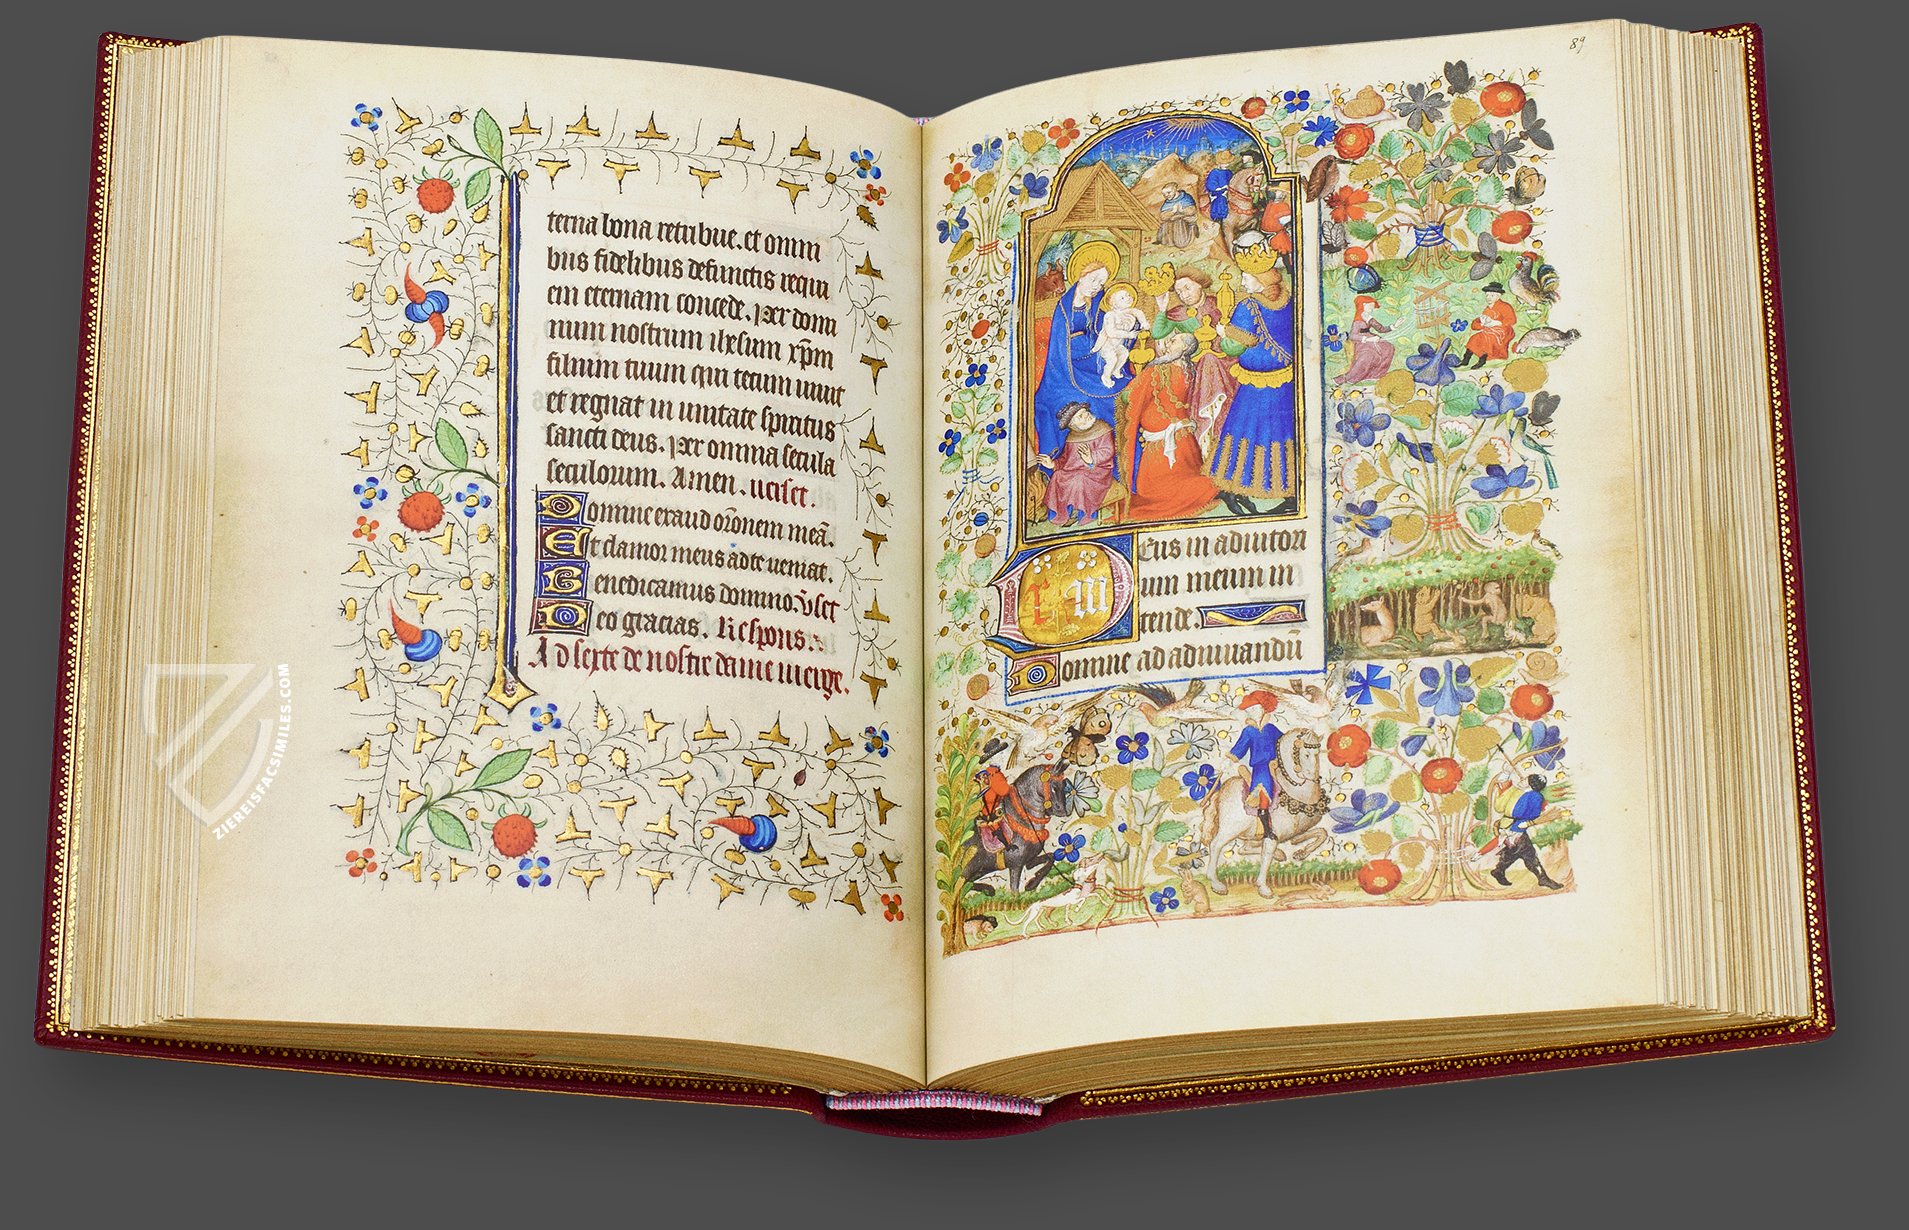 terna bona retribue. et omni
bus fidelibus defunctis requi
em eternam concede. Per domi
num nostrum ihesum xpm
filium tuum qui tecum uiuit
et regnat in unitate spiritus
sancti deus. Per omnia secula
seculorum. Amen. verset.
Domine exaud oronem meā.
Et clamor meus ad te ueniat.
Benedicamus domino. vset
Deo gracias. Respons.
Ad sexte de nostre dame vierge.
89
Deus in adiutori
um meum in
tende.
Domine ad adiuuandū
ZIEREISFACSIMILES.COM